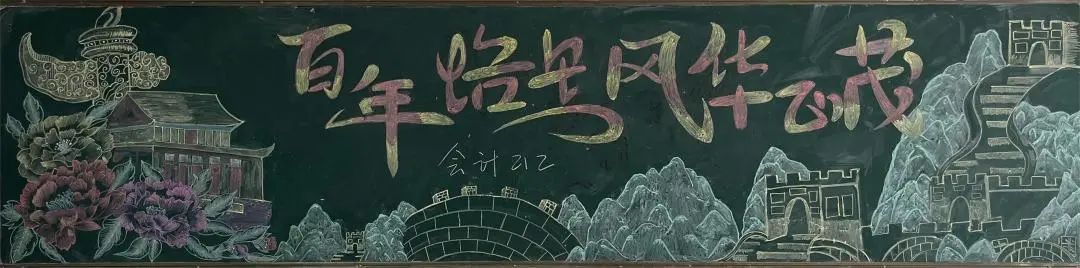 百年恰是风华正茂
会计212